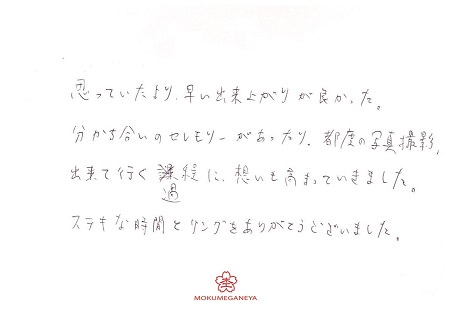 思っていたより、早い出来上がりが良かった。
分かち合いのセレモリーがあったり、都度の写真撮影、
出来て行く過綻に、想いも高まっていきました。
ステキな時間とリングをありがとうございました。
MOKUMEGANEYA